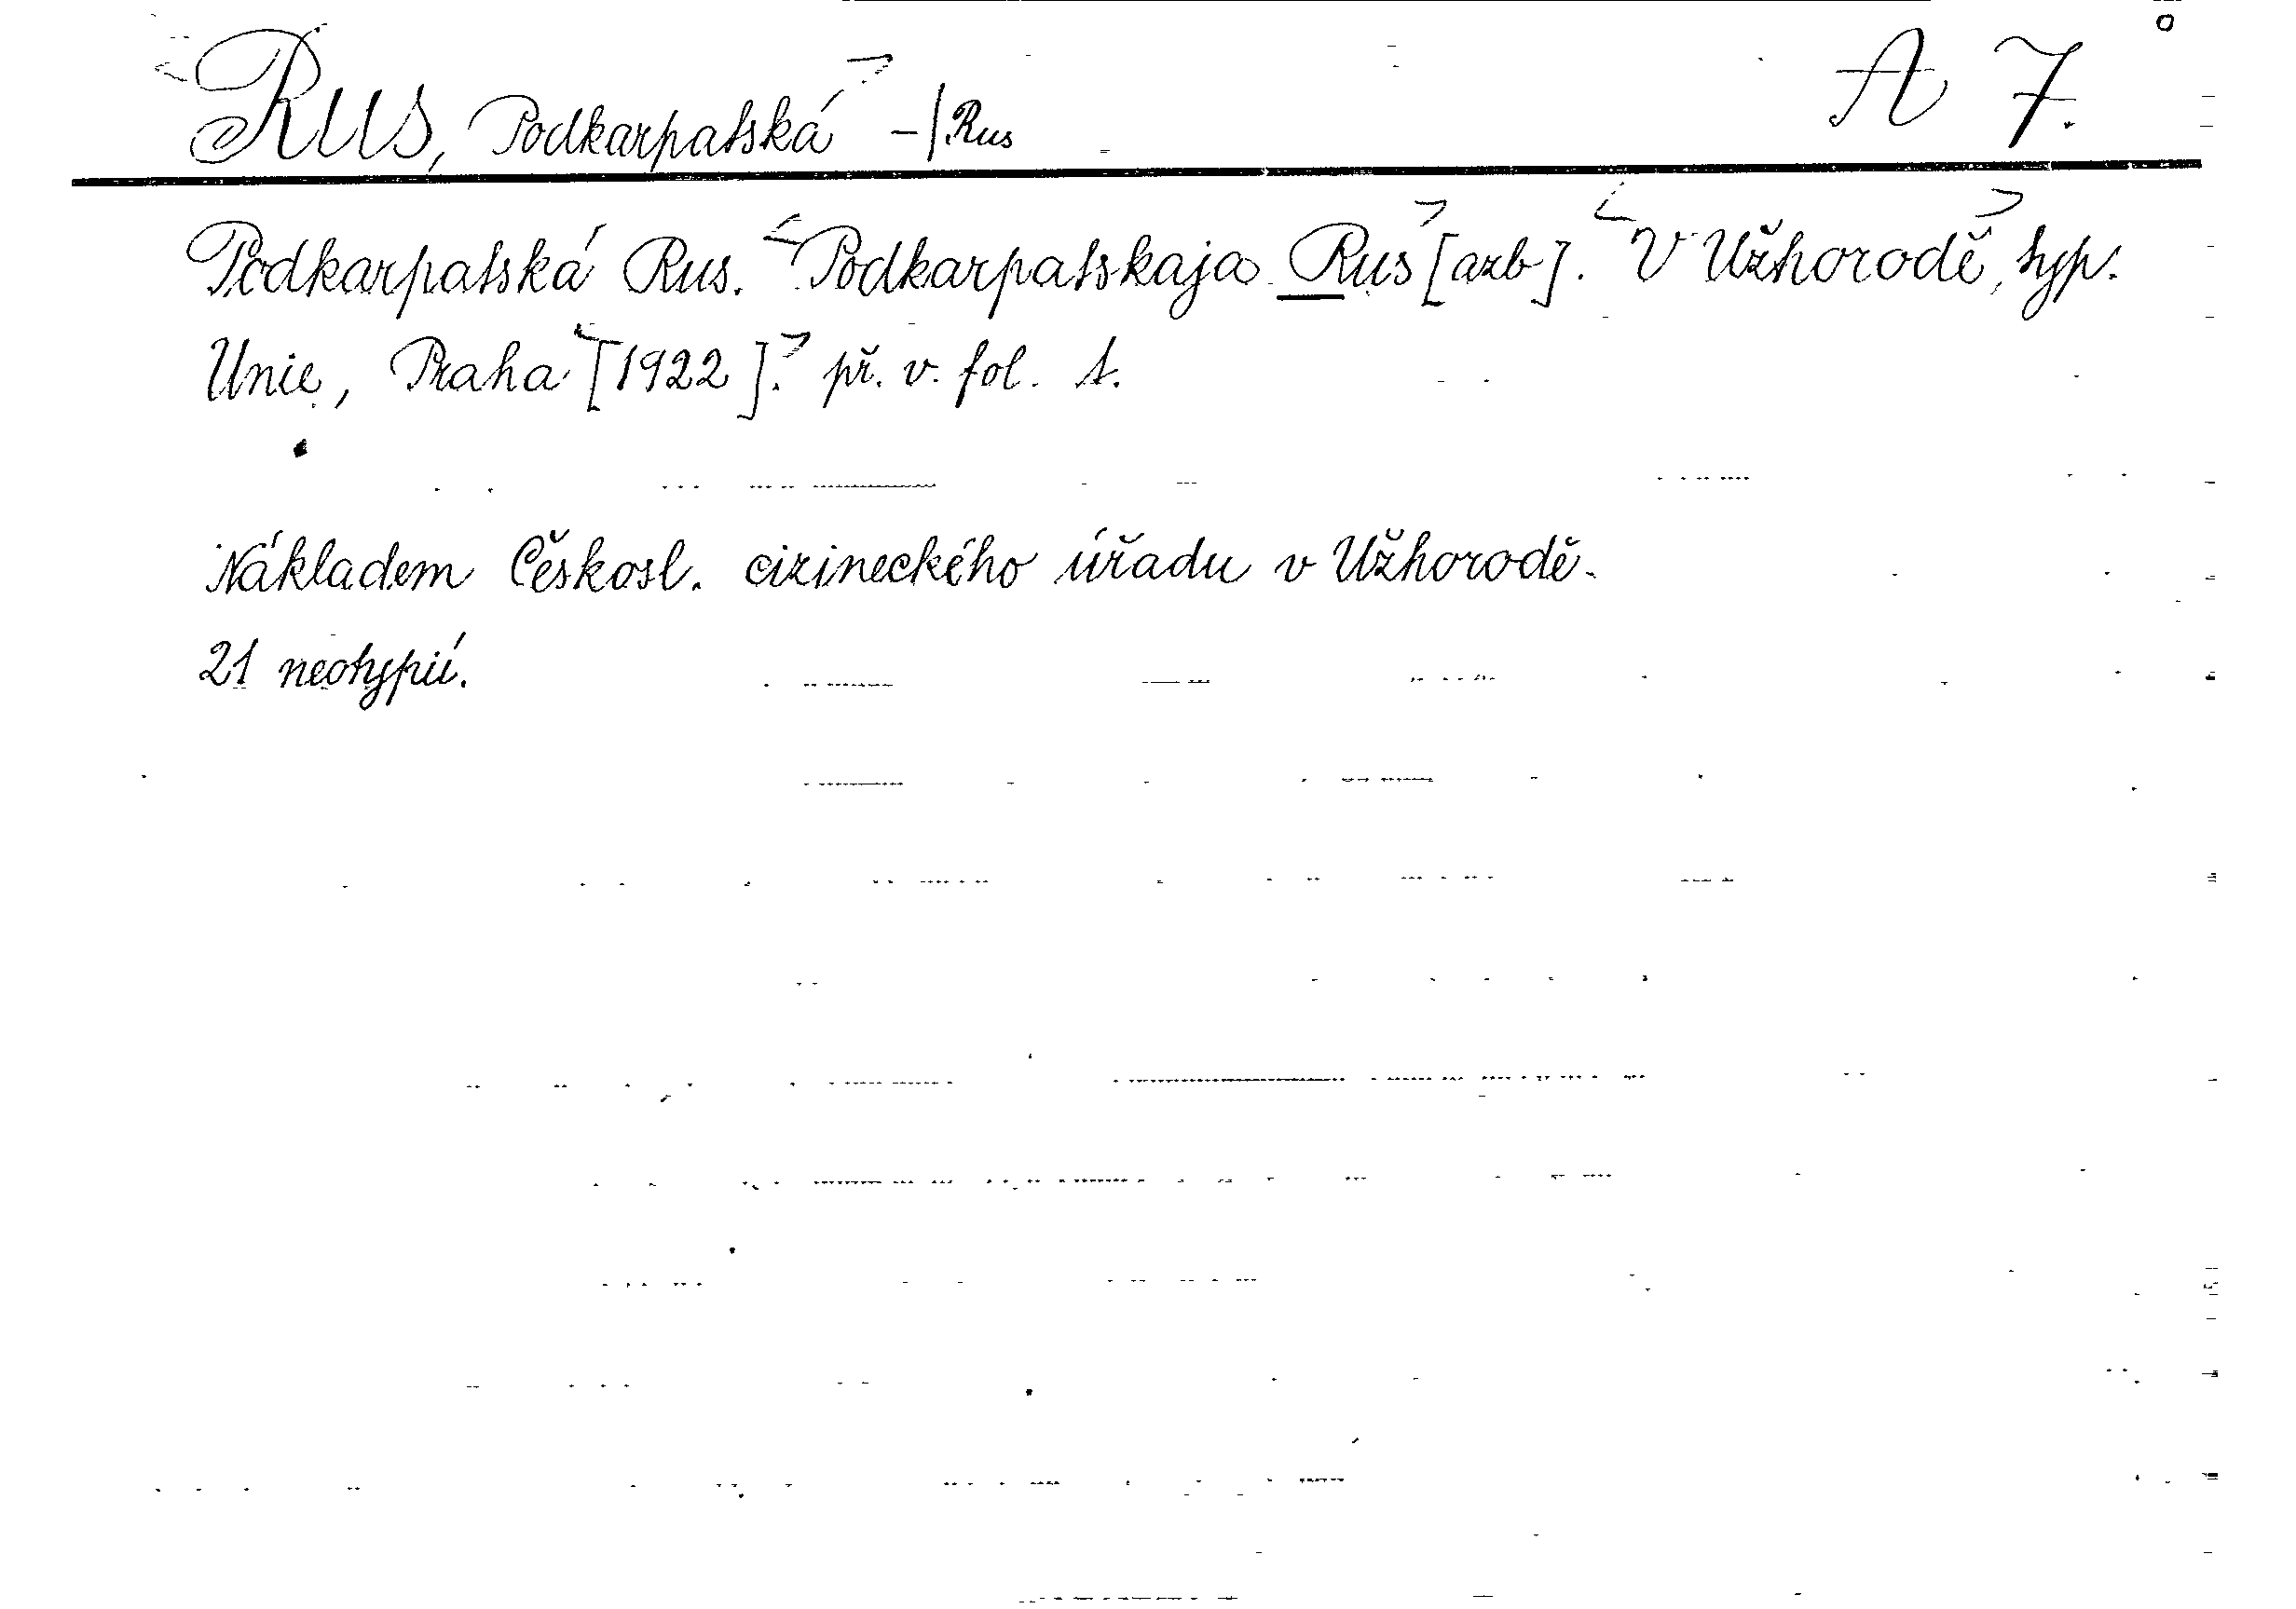 Rus, Podkarpatská -/Rus A 7.
Podkarpatská Rus. Podkarpatskaja Rus [azb]. V Užhorodě, typ.
Unie, Praha [1922]. př. v. fol. t.
Nákladem Českosl. cizineckého úřadu v Užhorodě.
21 neotypií.